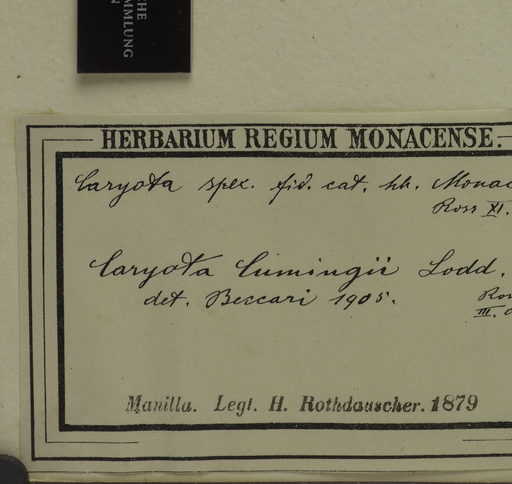 HE
MMLUNG
N
HERBARIUM REGIUM MONACENSE.
Caryota spec. fid. cat. hb. Monac
Ross XI.
Caryota Cumingii Lodd.
det. Beccari 1905.
Ros
III.
Manilla. Legt. H. Rothdauscher. 1879